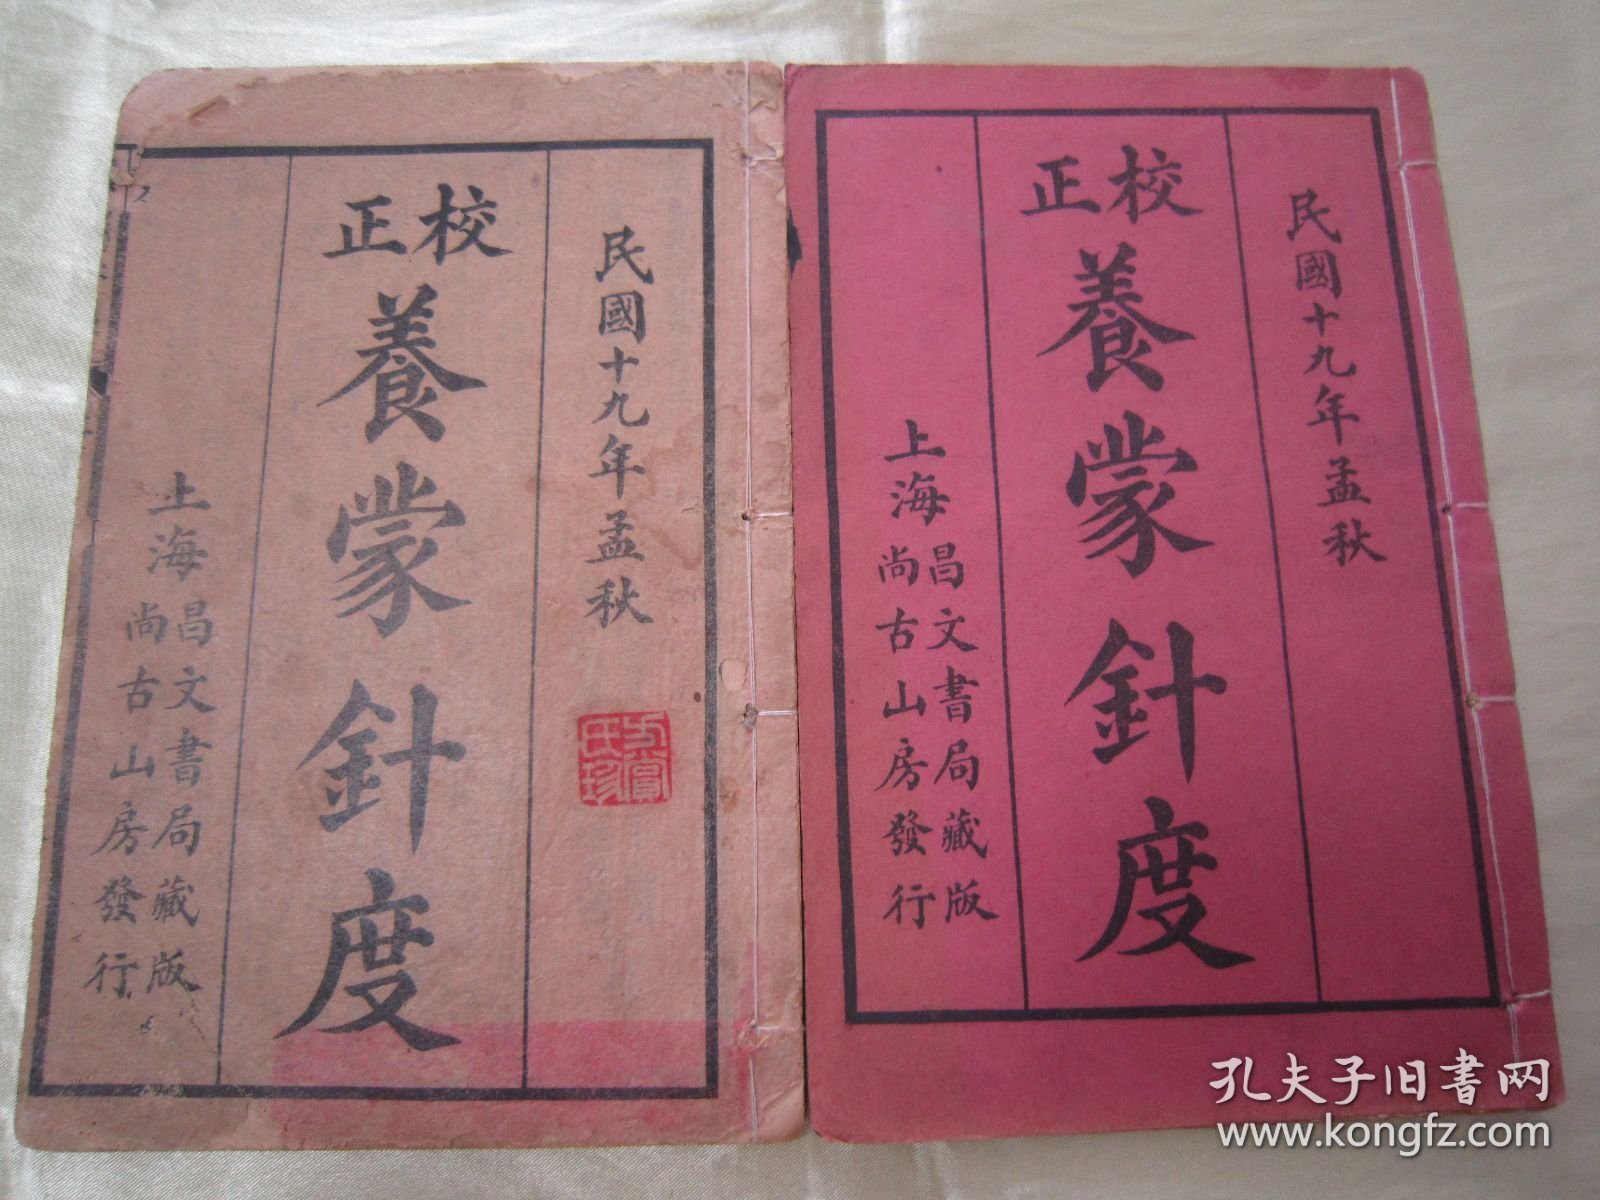 民國十九年孟秋
校正
養蒙針度
上海
昌文書局藏版
尚古山房發行
民國十九年孟秋
校正
養蒙針度
上海
昌文書局藏版
尚古山房發行
孔夫子旧书网
www.kongfz.com